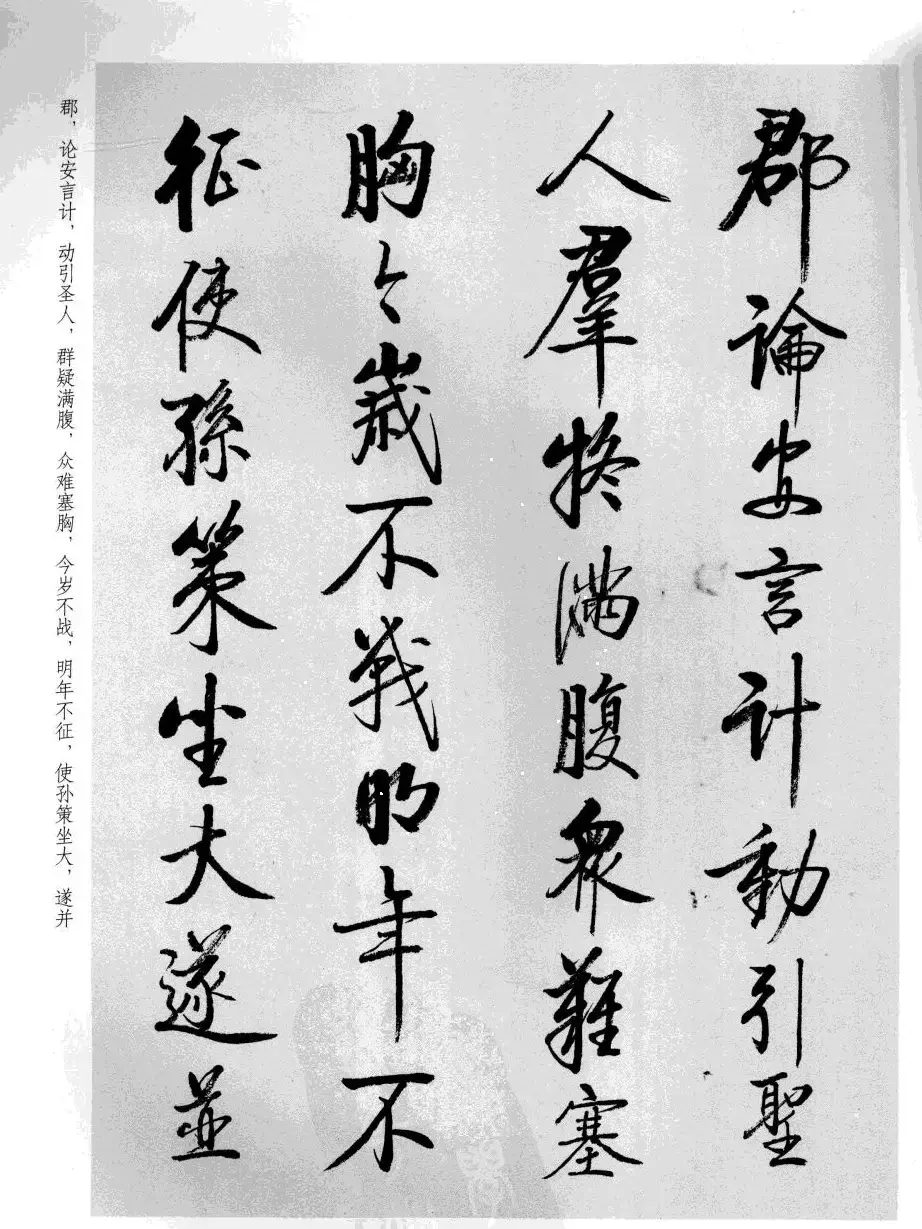 郡論安言計動引聖
人羣疑滿腹衆難塞
胸今歲不戰明年不
征使孫策坐大遂並
郡，论安言计，动引圣人，群疑满腹，众难塞胸，今岁不战，明年不征，使孙策坐大，遂并